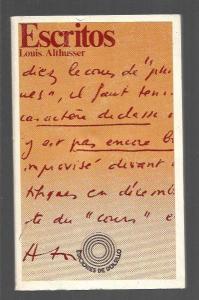 Escritos
Louis Althusser
diez le cours de "phi
ues", il faut ten
caractère de classe
y est pas encore b
improvisé devant
tiques en décemb
te du "cours" e
EDICIONES DE BOLSILLO